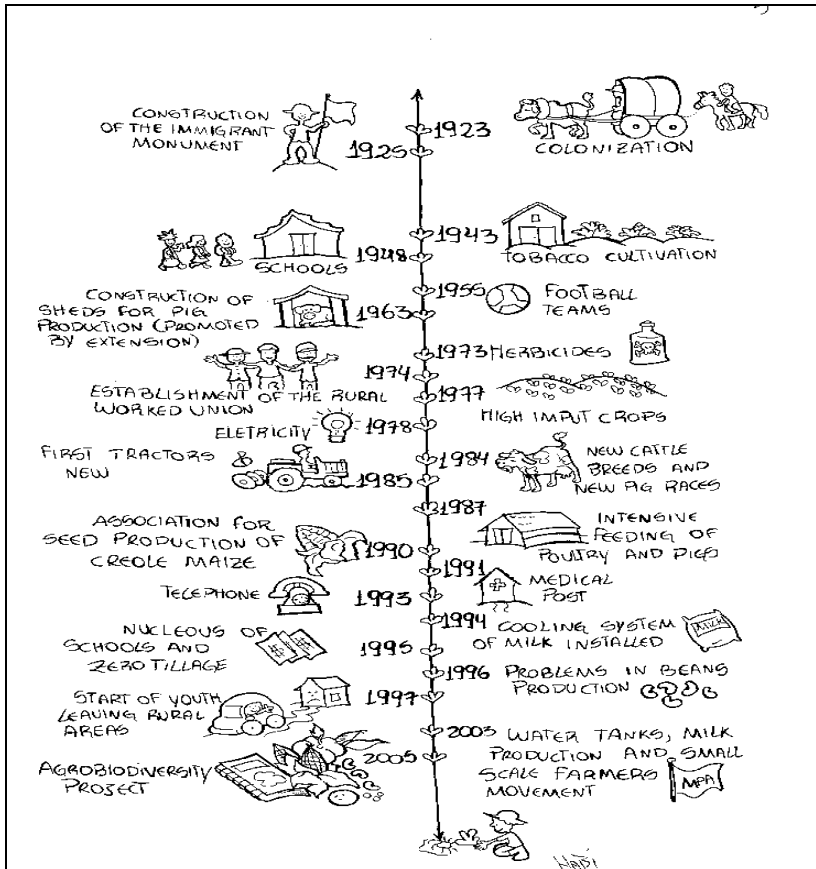 1923
COLONIZATION
CONSTRUCTION
OF THE IMMIGRANT
MONUMENT
1925
1943
TOBACCO CULTIVATION
1948
SCHOOLS
1955
FOOTBALL
TEAMS
CONSTRUCTION OF
SHEDS FOR PIG
PRODUCTION (PROMOTED
BY EXTENSION)
1963
1973 HERBICIDES
1974
ESTABLISHMENT OF THE RURAL
WORKED UNION
1977
HIGH IMPUT CROPS
ELETRICITY
1978
1984
NEW CATTLE
BREEDS AND
NEW PIG RACES
FIRST TRACTORS
NEW
1985
1987
INTENSIVE
FEEDING OF
POULTRY AND PIGS
ASSOCIATION FOR
SEED PRODUCTION OF
CREOLE MAIZE
1990
1991
MEDICAL
POST
TELEPHONE
1993
1994 COOLING SYSTEM
OF MILK INSTALLED
MILK
NUCLEOUS OF
SCHOOLS AND
ZERO TILLAGE
1995
1996 PROBLEMS IN BEANS
PRODUCTION
START OF YOUTH
LEAVING RURAL
AREAS
1997
2003 WATER TANKS, MILK
PRODUCTION AND SMALL
SCALE FARMERS
MOVEMENT
MPA
AGROBIODIVERSITY
PROJECT
2005